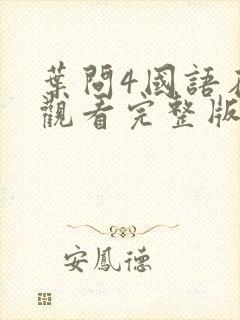 葉問4國語
觀看完整版
安鳳德